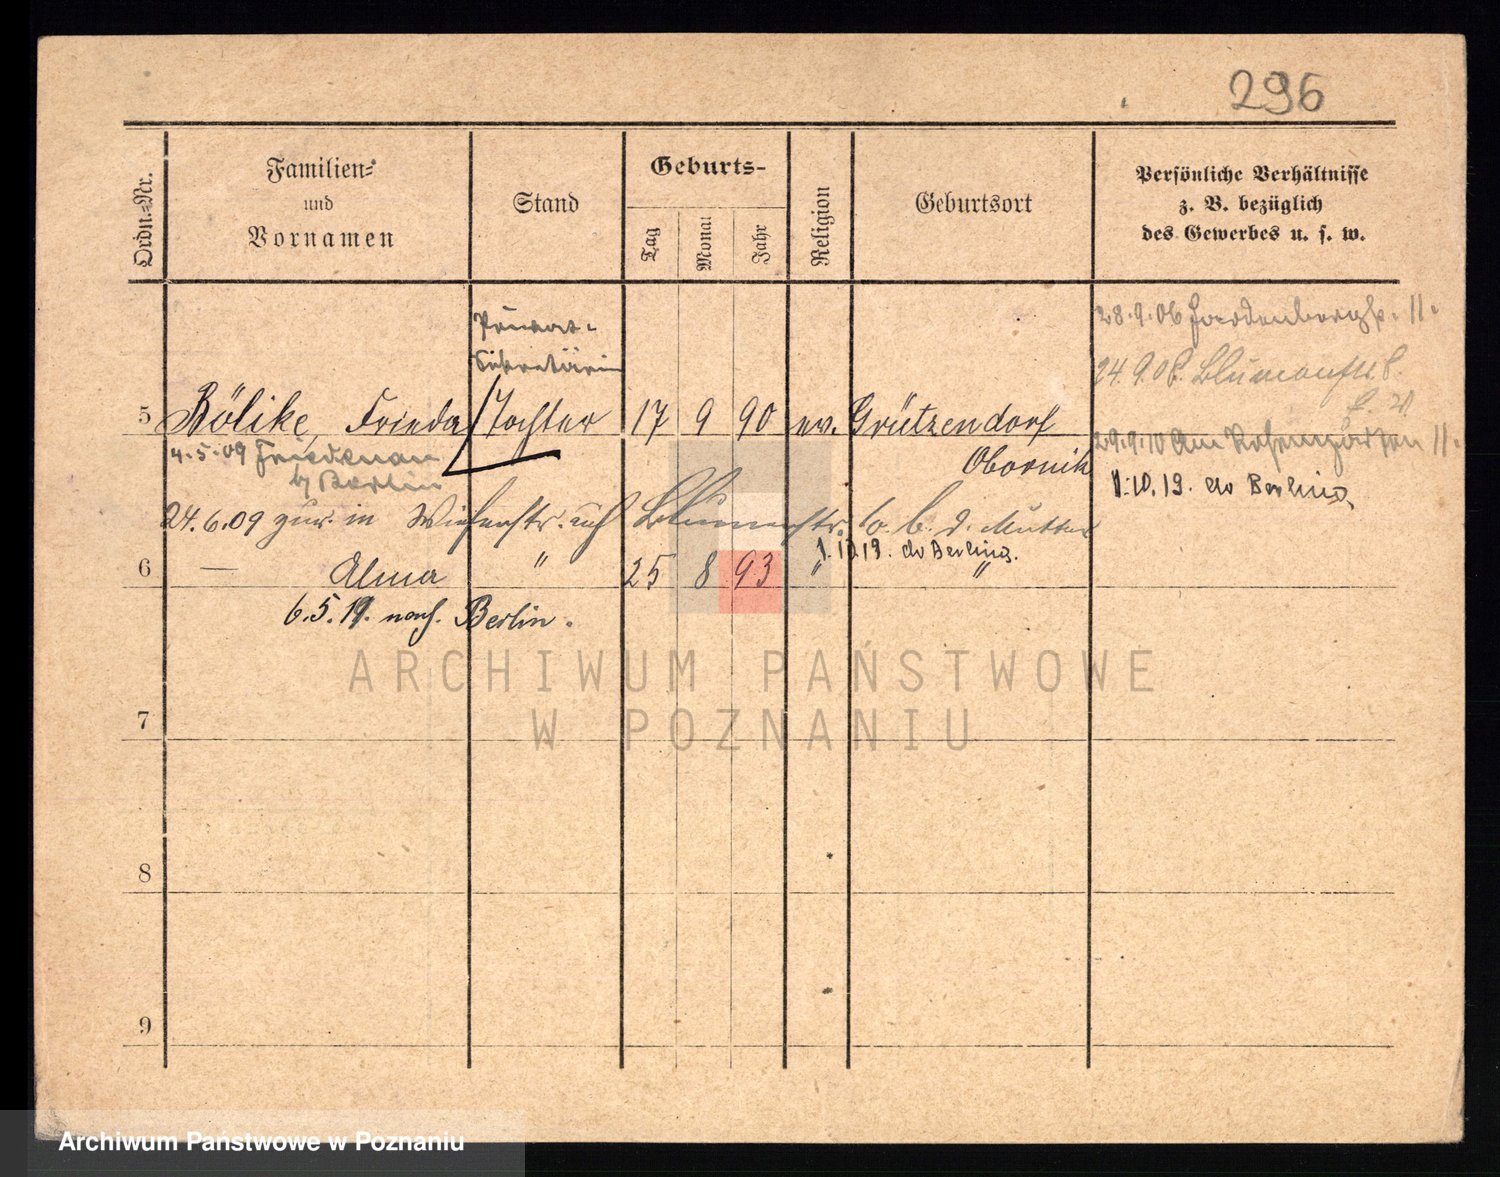 296
Ordn.-Nr.
Familien-
und
Vornamen
Stand
Geburts-
Tag
Monat
Jahr
Religion
Geburtsort
Persönliche Verhältnisse
z. B. bezüglich
des Gewerbes u. s. w.
Privat-
Sekretärin
28.9.06 Hardenbergstr. 11.
24.9.08. Blumenstr. 8.
5 Bölike, Frieda Tochter 17 9 90 ev. Grützendorf
Obornik
29.9.10 Am Rosengarten 11.
4.5.09 Friedenau
b/ Berlin
1.10.19. do Berlin
24.6.09 zur. in Blumenstr. b. d. Mutter
1.10.19. do Berlin
6 — Alma " 25 8 93 " "
6.5.19. nach Berlin.
7
8
9
ARCHIWUM PAŃSTWOWE
W POZNANIU
Archiwum Państwowe w Poznaniu